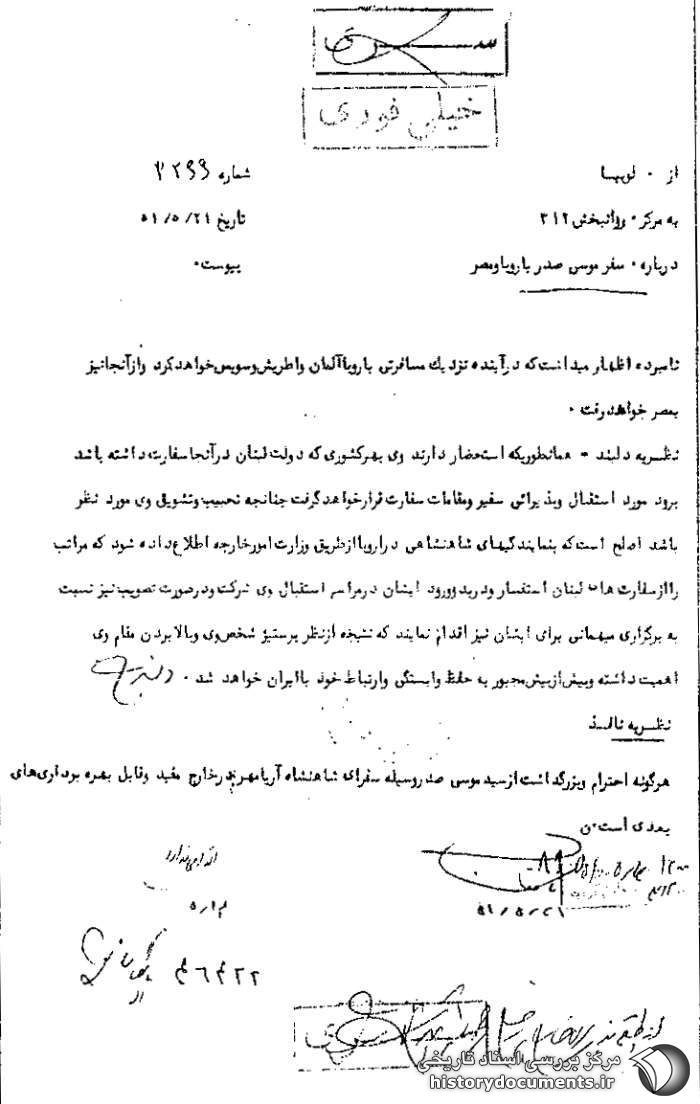 سری
خیلی فوری
از ۰ لوبیا
شماره ۳۲۹۹
به مرکز ۰ روانبخش ۳۱۲
تاریخ ۵۱/۵/۲۱
درباره ۰ سفر موسی صدر باروپا ومصر
پیوست ۰
نامبرده اظهار میداشت که در آینده نزدیک مسافرتی باروپا آلمان واطریش وسویس خواهد کرد واز آنجا نیز
بمصر خواهد رفت ۰
نظریه دلبند - همانطوریکه استحضار دارند وی بهر کشوری که دولت لبنان در آنجا سفارت داشته باشد
برود مورد استقبال وپذیرائی سفیر ومقامات سفارت قرار خواهد گرفت چنانچه تحبیب وتشویق وی مورد نظر
باشد اصلح است که بنمایندگیهای شاهنشاهی در اروپا از طریق وزارت امور خارجه اطلاع داده شود که مراتب
را از سفارت های لبنان استفسار ودر بدو ورود ایشان در مراسم استقبال وی شرکت ودر صورت تصویب نیز نسبت
به برگزاری میهمانی برای ایشان نیز اقدام نمایند که نتیجه از نظر پرستیژ شخص وی وبالا بردن مقام وی
اهمیت داشته وبیش از بیش مجبور به حفظ وابستگی وارتباط خود با ایران خواهد شد ۰
نظریه نافذ
هرگونه احترام وبزرگداشت از سید موسی صدر وسیله سفرای شاهنشاه آریامهر در خارج مفید وقابل بهره برداری های
بعدی است ۰ن
اقدامی ندارد
۵۱/۵/۲۱
۴۶۴۲۲
مرکز بررسی اسناد تاریخی
historydocuments.ir